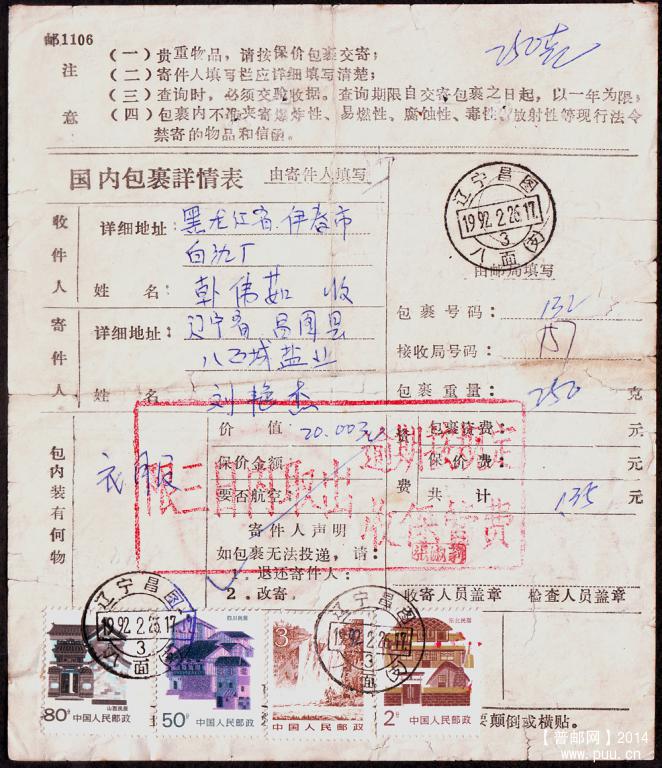 邮1106
250克
注意
(一) 贵重物品，请按保价包裹交寄；
(二) 寄件人填写栏应详细填写清楚；
(三) 查询时，必须交验收据。查询期限自交寄包裹之日起，以一年为限；
(四) 包裹内不准夹寄爆炸性、易燃性、腐蚀性、毒性、放射性等现行法令
禁寄的物品和信函。
国内包裹詳情表 由寄件人填写
辽宁昌图
1992.2.26.17
3
八面
由邮局填写
收件人
详细地址：黑龙江省伊春市
姓 名：韩伟茹 收
寄件人
详细地址：辽宁省昌图县
八面城盐业
姓 名 刘艳杰
包裹号码：132
接收局号码：
包裹重量：250 克
包内装有何物
衣服
价 值：20.00元
保价金额：
要否航空：
资费
包裹资费： 元
保价费： 元
共 计 135 元
限三日内取出
逾期按规定
收保管费
寄件人声明
如包裹无法投递，请：
1．退还寄件人：
2．改寄：
收寄人员盖章 检查人员盖章
辽宁昌图
1992.2.26.17
3
八面
辽宁昌图
1992.2.26.17
3
面
山西民居
80分 中国人民邮政
四川民居
50分 中国人民邮政
3
中国人民邮政
东北民居
2分 中国人民邮政
要颠倒或横贴。
【普邮网】2014
www.puu.cn